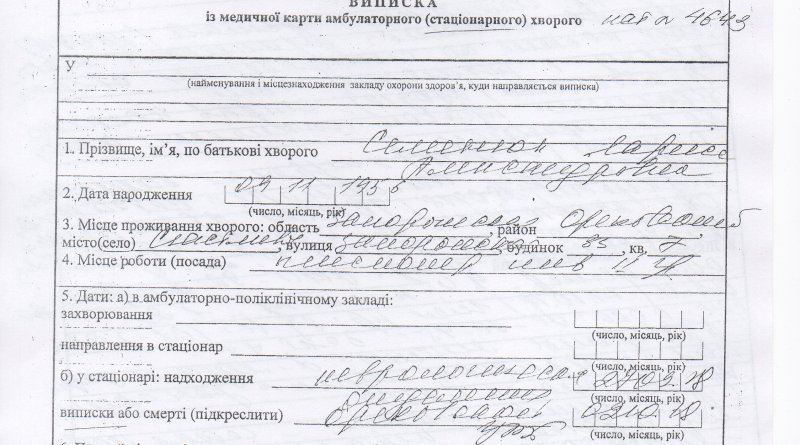 ВИПИСКА
із медичної карти амбулаторного (стаціонарного) хворого 4643
У
(найменування і місцезнаходження закладу охорони здоров'я, куди направляється виписка)
1. Прізвище, ім'я, по батькові хворого
Александровна
2. Дата народження 09 11 1956
(число, місяць, рік)
3. Місце проживання хворого: область Запорожская, район Ореховский
місто(село), вулиця Запорожская, будинок 85, кв. 7
4. Місце роботи (посада) пенсионер инв II гр
5. Дати: а) в амбулаторно-поліклінічному закладі:
захворювання
(число, місяць, рік)
направлення в стаціонар
(число, місяць, рік)
б) у стаціонарі: надходження неврологическое 2
(число, місяць, рік)
отделение
виписки або смерті (підкреслити) 0210 18
(число, місяць, рік)